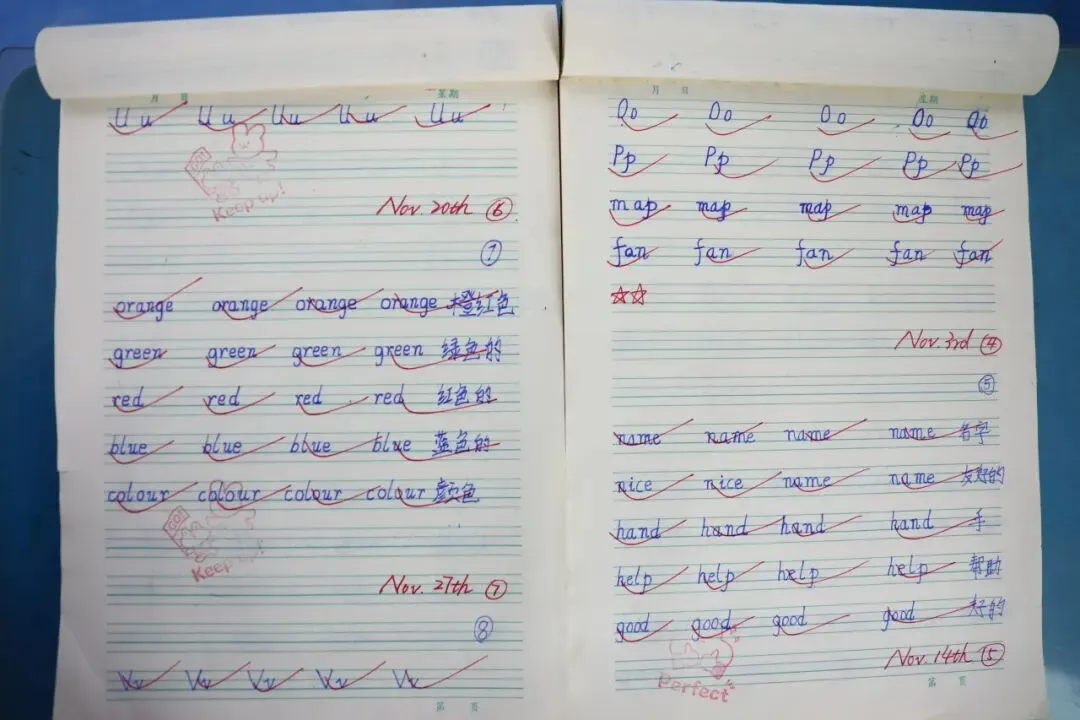 月 日 星期
Uu Uu Uu Uu Uu
GO!
Keep up!
Nov. 20th ⑥
⑦
orange orange orange orange 橙红色
green green green green 绿色的
red red red red 红色的
blue blue blue blue 蓝色的
colour colour colour colour 颜色
GO!
Keep up!
Nov. 27th ⑦
⑧
Vv Vv Vv Vv Vv
第 页
月 日 星期
Oo Oo Oo Oo Oo
Pp Pp Pp Pp Pp
map map map map map
fan fan fan fan fan
Nov. 3rd ④
⑤
name name name name 名字
nice nice name name 友好的
hand hand hand hand 手
help help help help 帮助
good good good good 好的
Nov. 14th ⑤
Perfect
第 页